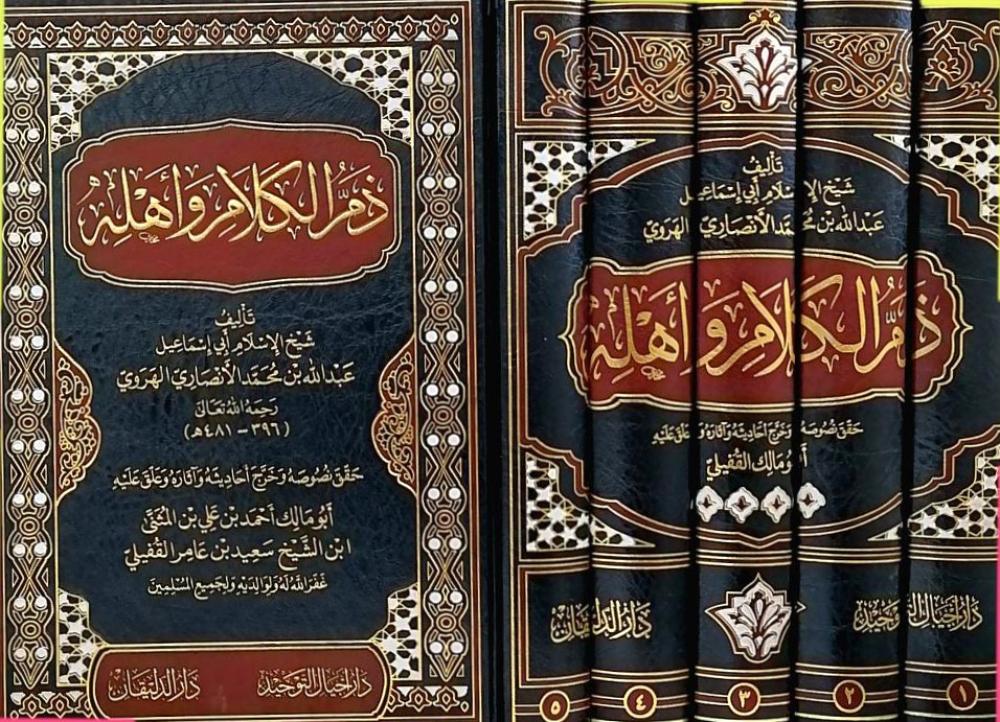 ذم الكلام وأهله
تأليف
شيخ الإسلام أبي إسماعيل
عبد الله بن محمد الأنصاري الهروي
رحمه الله تعالى
(٣٩٦ - ٤٨١ هـ)
حقق نصوصه وخرج أحاديثه وآثاره وعلق عليه
أبو مالك أحمد بن علي بن المثنى
ابن الشيخ سعيد بن عامر القفيلي
غفر الله له ولوالديه ولجميع المسلمين
دار أجيال التوحيد
دار الدليقان
تأليف
شيخ الإسلام أبي إسماعيل
عبد الله بن محمد الأنصاري الهروي
ذم الكلام وأهله
حقق نصوصه وخرج أحاديثه وآثاره وعلق عليه
أبو مالك القفيلي
دار أجيال التوحيد
دار الدليقان
١ ٢ ٣ ٤ ٥